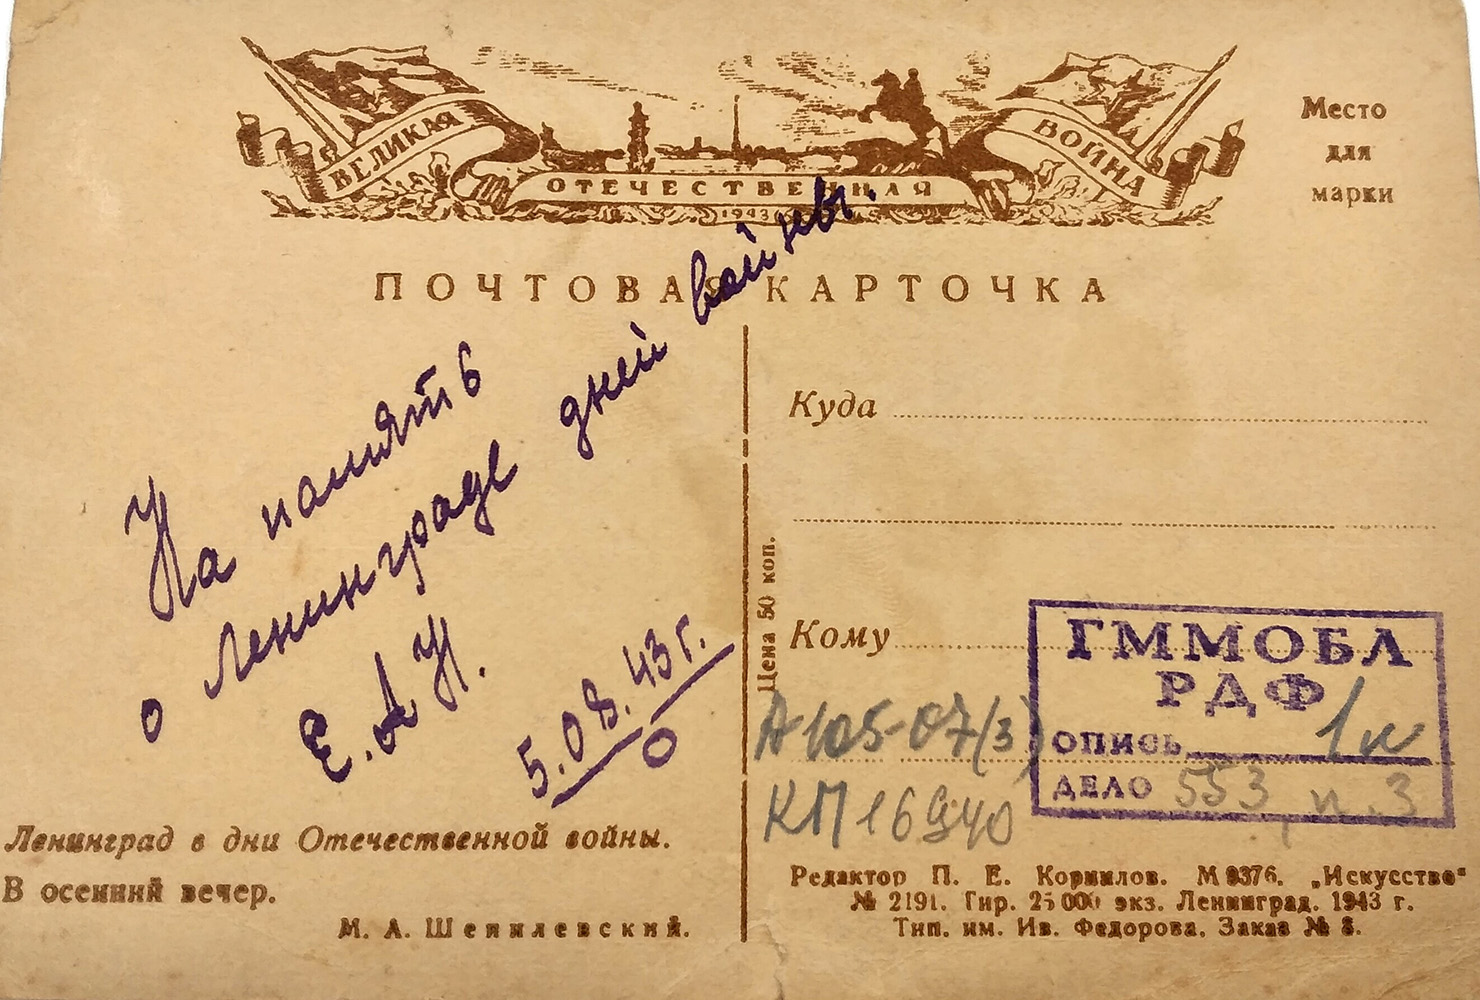 ВЕЛИКАЯ
ОТЕЧЕСТВЕННАЯ
ВОЙНА
1943
Место
для
марки
ПОЧТОВАЯ КАРТОЧКА
На память
о Ленинграде дней войны.
Е. А. Н.
5.08.43 г.
Куда
Кому
Цена 50 коп.
ГММОБЛ
РДФ
ОПИСЬ 1к
ДЕЛО 553, п. 3
А-105-07(3)
КП 16940
Ленинград в дни Отечественной войны.
В осенний вечер.
М. А. Шепилевский.
Редактор П. Е. Корнилов. М 9376. „Искусство“
№ 2191. Тир. 25 000 экз. Ленинград. 1943 г.
Тип. им. Ив. Федорова. Заказ № 8.